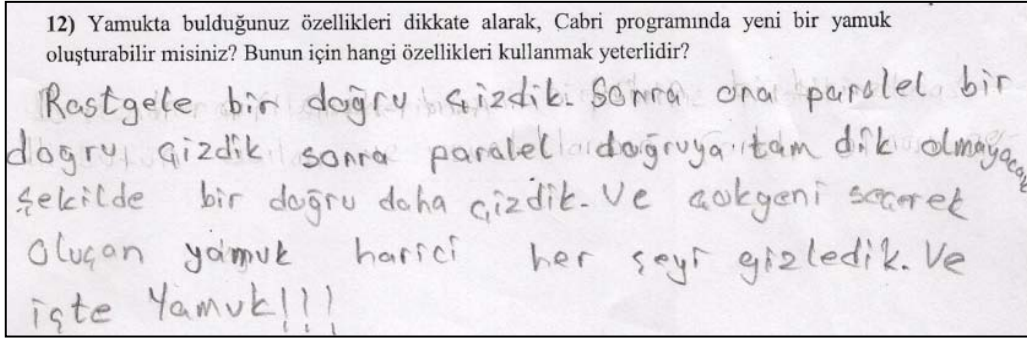 12) Yamukta bulduğunuz özellikleri dikkate alarak, Cabri programında yeni bir yamuk
oluşturabilir misiniz? Bunun için hangi özellikleri kullanmak yeterlidir?
Rastgele bir doğru çizdik. Sonra ona paralel bir
dogru çizdik sonra paralel doğruya tam dik olmayacak
şekilde bir doğru daha çizdik. Ve çokgeni seçerek
oluşan yamuk harici her şeyi gizledik. Ve
işte Yamuk!!!